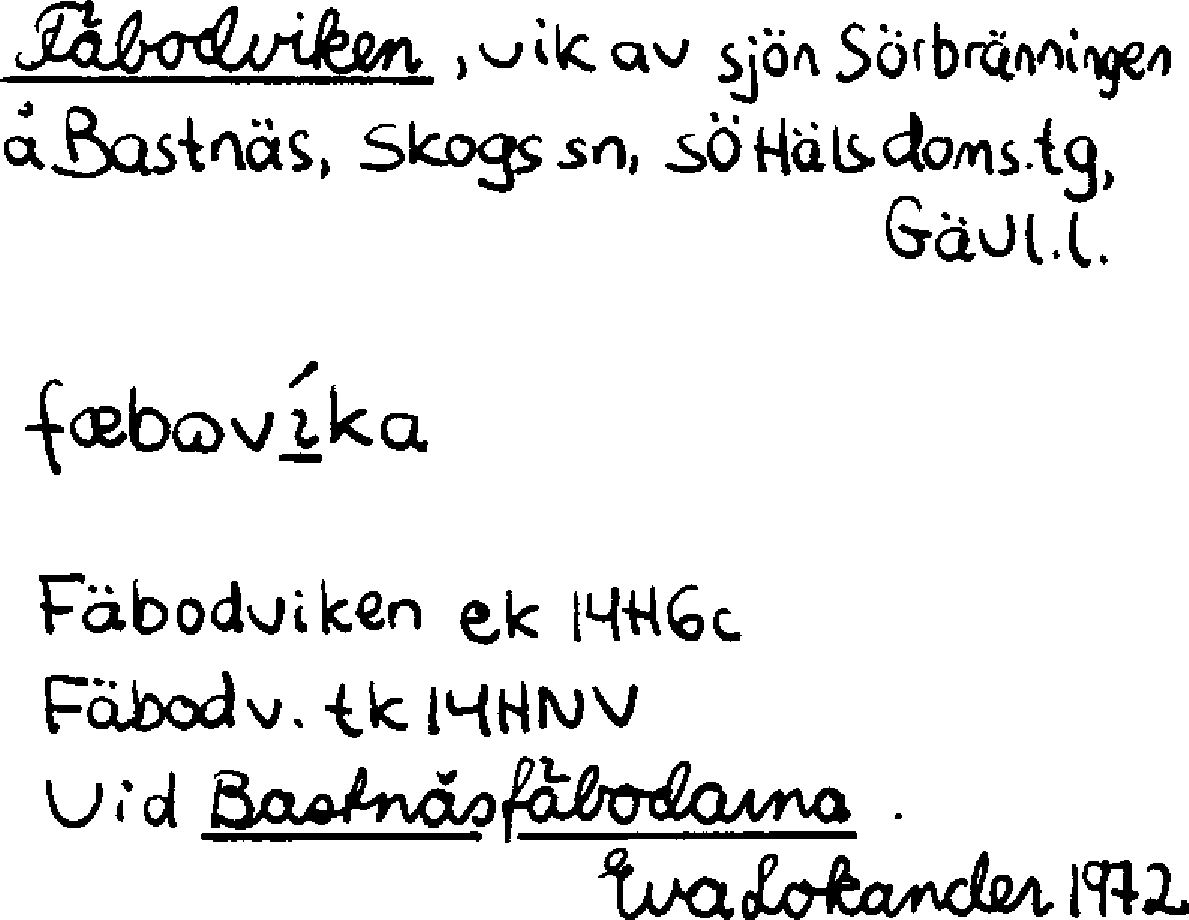 Fäbodviken, vik av sjön Sörbränningen
å Bastnäs, Skogs sn, SÖ Häls doms.tg,
Gävl.l.
fæbωvíka
Fäbodviken ek 14H6c
Fäbodv. tk 14HNV
Vid Bastnäsfäbodarna.
Eva Lokander 1972